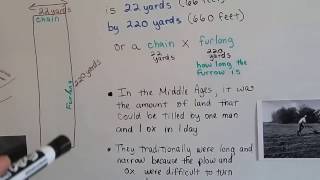 22 yards
chain
Furlong
220 yards
is 22 yards (66 feet)
by 220 yards (660 feet)
or a chain x furlong
22 yards
220 yards
how long the
furrow is
• In the Middle Ages, it was
the amount of land that
could be tilled by one man
and 1 ox in 1 day
• They traditionally were long and
narrow because the plow and
ox were difficult to turn